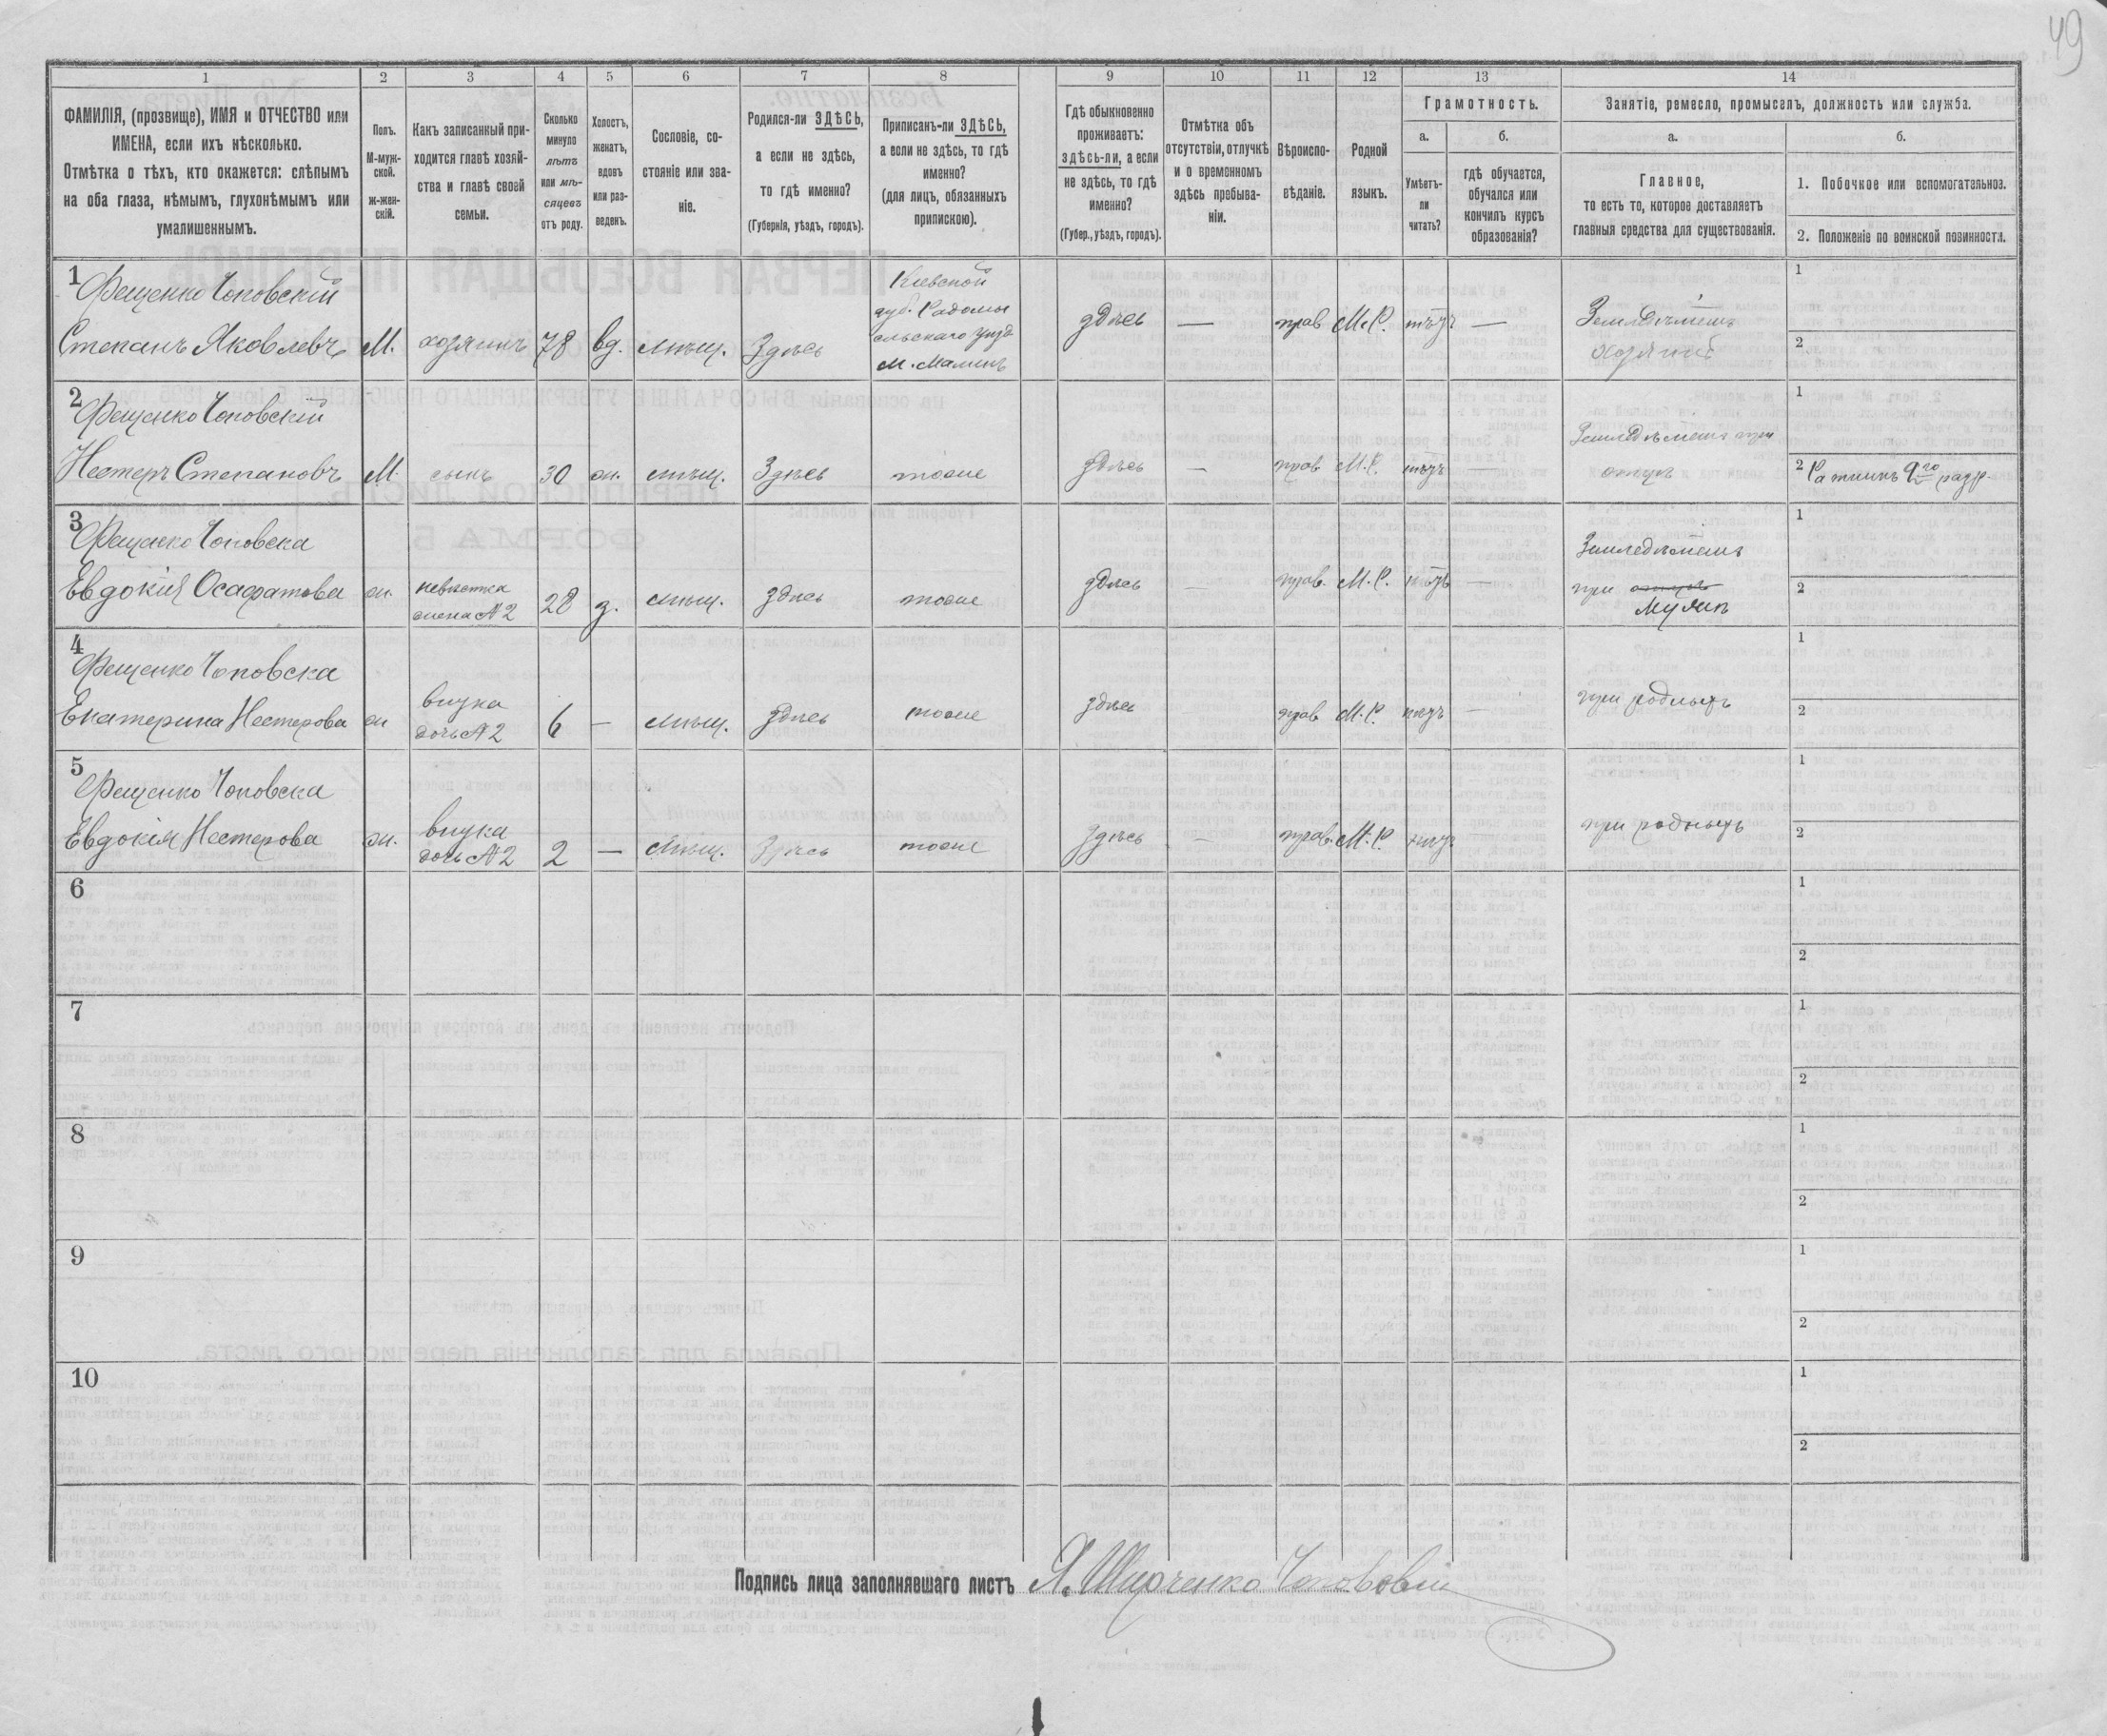 49
1 2 3 4 5 6 7 8 9 10 11 12 13 14
ФАМИЛІЯ, (прозвище), ИМЯ и ОТЧЕСТВО или
ИМЕНА, если ихъ нѣсколько.
Отмѣтка о тѣхъ, кто окажется: слѣпымъ
на оба глаза, нѣмымъ, глухонѣмымъ или
умалишеннымъ.
Полъ.
М-муж-
ской.
ж-жен-
скій.
Какъ записанный при-
ходится главѣ хозяй-
ства и главѣ своей
семьи.
Сколько
минуло
лѣтъ
или мѣ-
сяцевъ
отъ роду.
Холостъ,
женатъ,
вдовъ
или раз-
веденъ.
Сословіе, со-
стояніе или зва-
ніе.
Родился-ли ЗДѢСЬ,
а если не здѣсь,
то гдѣ именно?
(Губернія, уѣздъ, городъ).
Приписанъ-ли ЗДѢСЬ,
а если не здѣсь, то гдѣ
именно?
(для лицъ, обязанныхъ
припискою).
Гдѣ обыкновенно
проживаетъ:
здѣсь-ли, а если
не здѣсь, то гдѣ
именно?
(Губер., уѣздъ, городъ).
Отмѣтка объ
отсутствіи, отлучкѣ
и о временномъ
здѣсь пребыва-
ніи.
Вѣроиспо-
вѣданіе.
Родной
языкъ.
Грамотность.
а.
Умѣетъ-
ли
читать?
б.
гдѣ обучается,
обучался или
кончилъ курсъ
образованія?
Занятіе, ремесло, промыселъ, должность или служба.
а.
Главное,
то есть то, которое доставляетъ
главныя средства для существованія.
б.
1. Побочное или вспомогательное.
2. Положеніе по воинской повинности.
1
Фещенко Чоповскій
Степанъ Яковлевъ
М.
хозяинъ
78
вд.
мѣщ.
Здѣсь
Кіевской
губ. Радомы
сльскаго уѣзд
м. Малинъ
здѣсь
—
прав
М. Р.
нѣтъ
—
Земледѣлецъ
хозяинъ
1
2
2
Фещенко Чоповскій
Нестеръ Степановъ
М.
сынъ
30
ж.
мѣщ.
Здѣсь
тоже
здѣсь
—
прав
М. Р.
нѣтъ
—
Земледѣлецъ при
отцѣ
1
2 Ратникъ 2го разр.
3
Фещенко Чоповска
Евдокія Осафатова
ж.
невѣстка
жена №2
28
з.
мѣщ.
здѣсь
тоже
здѣсь
—
прав.
М. Р.
нѣтъ
—
Земледѣлецъ
при
мужѣ
1
2
4
Фещенко Чоповска
Екатерина Нестерова
ж
внука
дочь №2
6
—
мѣщ.
здѣсь
тоже
здѣсь
прав
М. Р.
нѣтъ
—
при родныхъ
1
2
5
Фещенко Чоповска
Евдокія Нестерова
ж.
внука
дочь №2
2
—
мѣщ.
Здѣсь
тоже
здѣсь
—
прав.
М. Р.
нѣтъ
при родныхъ
1
2
6
1
2
7
1
2
8
1
2
9
1
2
10
1
2
Подпись лица заполнявшаго листъ